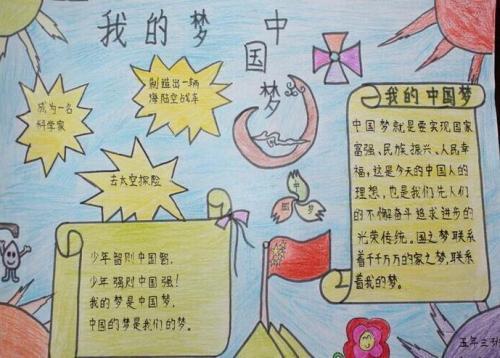 我的梦 中国梦
成为一名
科学家
制造出一辆
海陆空战车
去太空探险
中
梦
少年智则中国智,
少年强则中国强!
我的梦是中国梦,
中国的梦是我们的梦。
我的中国梦
中国梦就是要实现国家
富强、民族振兴、人民幸
福,这是今天的中国人的
理想,也是我们先人们
的不懈奋斗追求进步的
光荣传统。国之梦联系
着千千万万的家之梦,联系
着我的梦。
五年三班